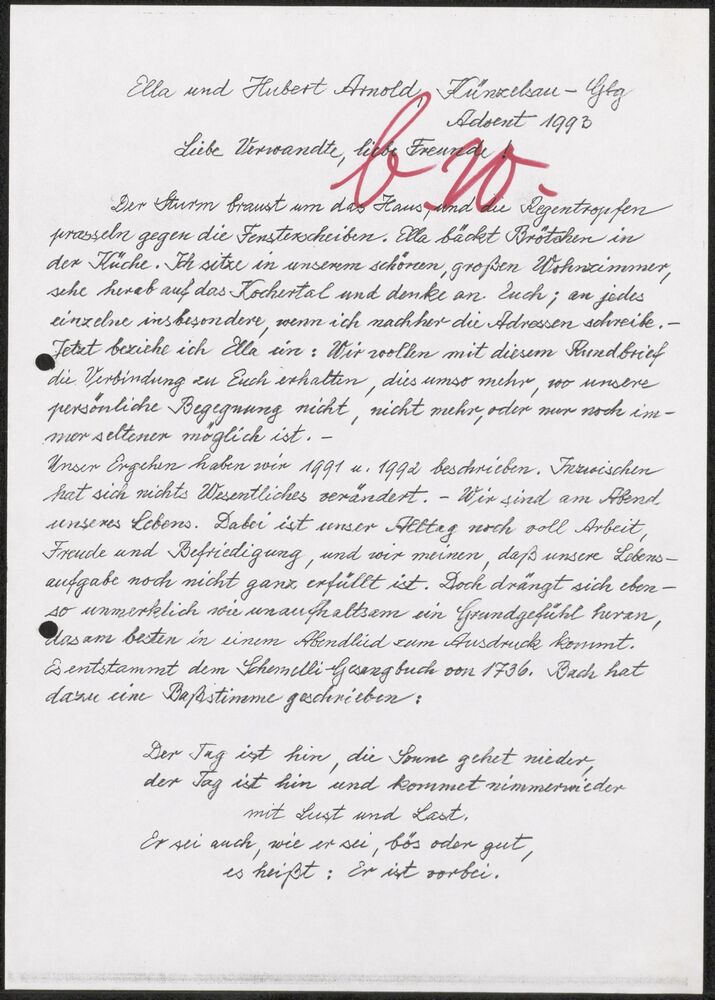 Ella und Hubert Arnold, Künzelsau - Gbg
Advent 1993
Liebe Verwandte, liebe Freunde!
b. w.
Der Sturm braust um das Haus, und die Regentropfen
prasseln gegen die Fensterscheiben. Ella bäckt Brötchen in
der Küche. Ich sitze in unserem schönen, großen Wohnzimmer,
sehe herab auf das Kochertal und denke an Euch; an jedes
einzelne insbesondere, wenn ich nachher die Adressen schreibe. -
Jetzt beziehe ich Ella ein: Wir wollen mit diesem Rundbrief
die Verbindung zu Euch erhalten, dies umso mehr, wo unsere
persönliche Begegnung nicht, nicht mehr, oder nur noch im-
mer seltener möglich ist. -
Unser Ergehen haben wir 1991 u. 1992 beschrieben. Inzwischen
hat sich nichts Wesentliches verändert. - Wir sind am Abend
unseres Lebens. Dabei ist unser Alltag noch voll Arbeit,
Freude und Befriedigung, und wir meinen, daß unsere Lebens-
aufgabe noch nicht ganz erfüllt ist. Doch drängt sich eben-
so unmerklich wie unaufhaltsam ein Grundgefühl heran,
das am besten in einem Abendlied zum Ausdruck kommt.
Es entstammt dem Schemelli-Gesangbuch von 1736. Bach hat
dazu eine Baßstimme geschrieben:
Der Tag ist hin, die Sonne gehet nieder,
der Tag ist hin und kommet nimmerwieder
mit Lust und Last.
Er sei auch, wie er sei, bös oder gut,
es heißt: Er ist vorbei.